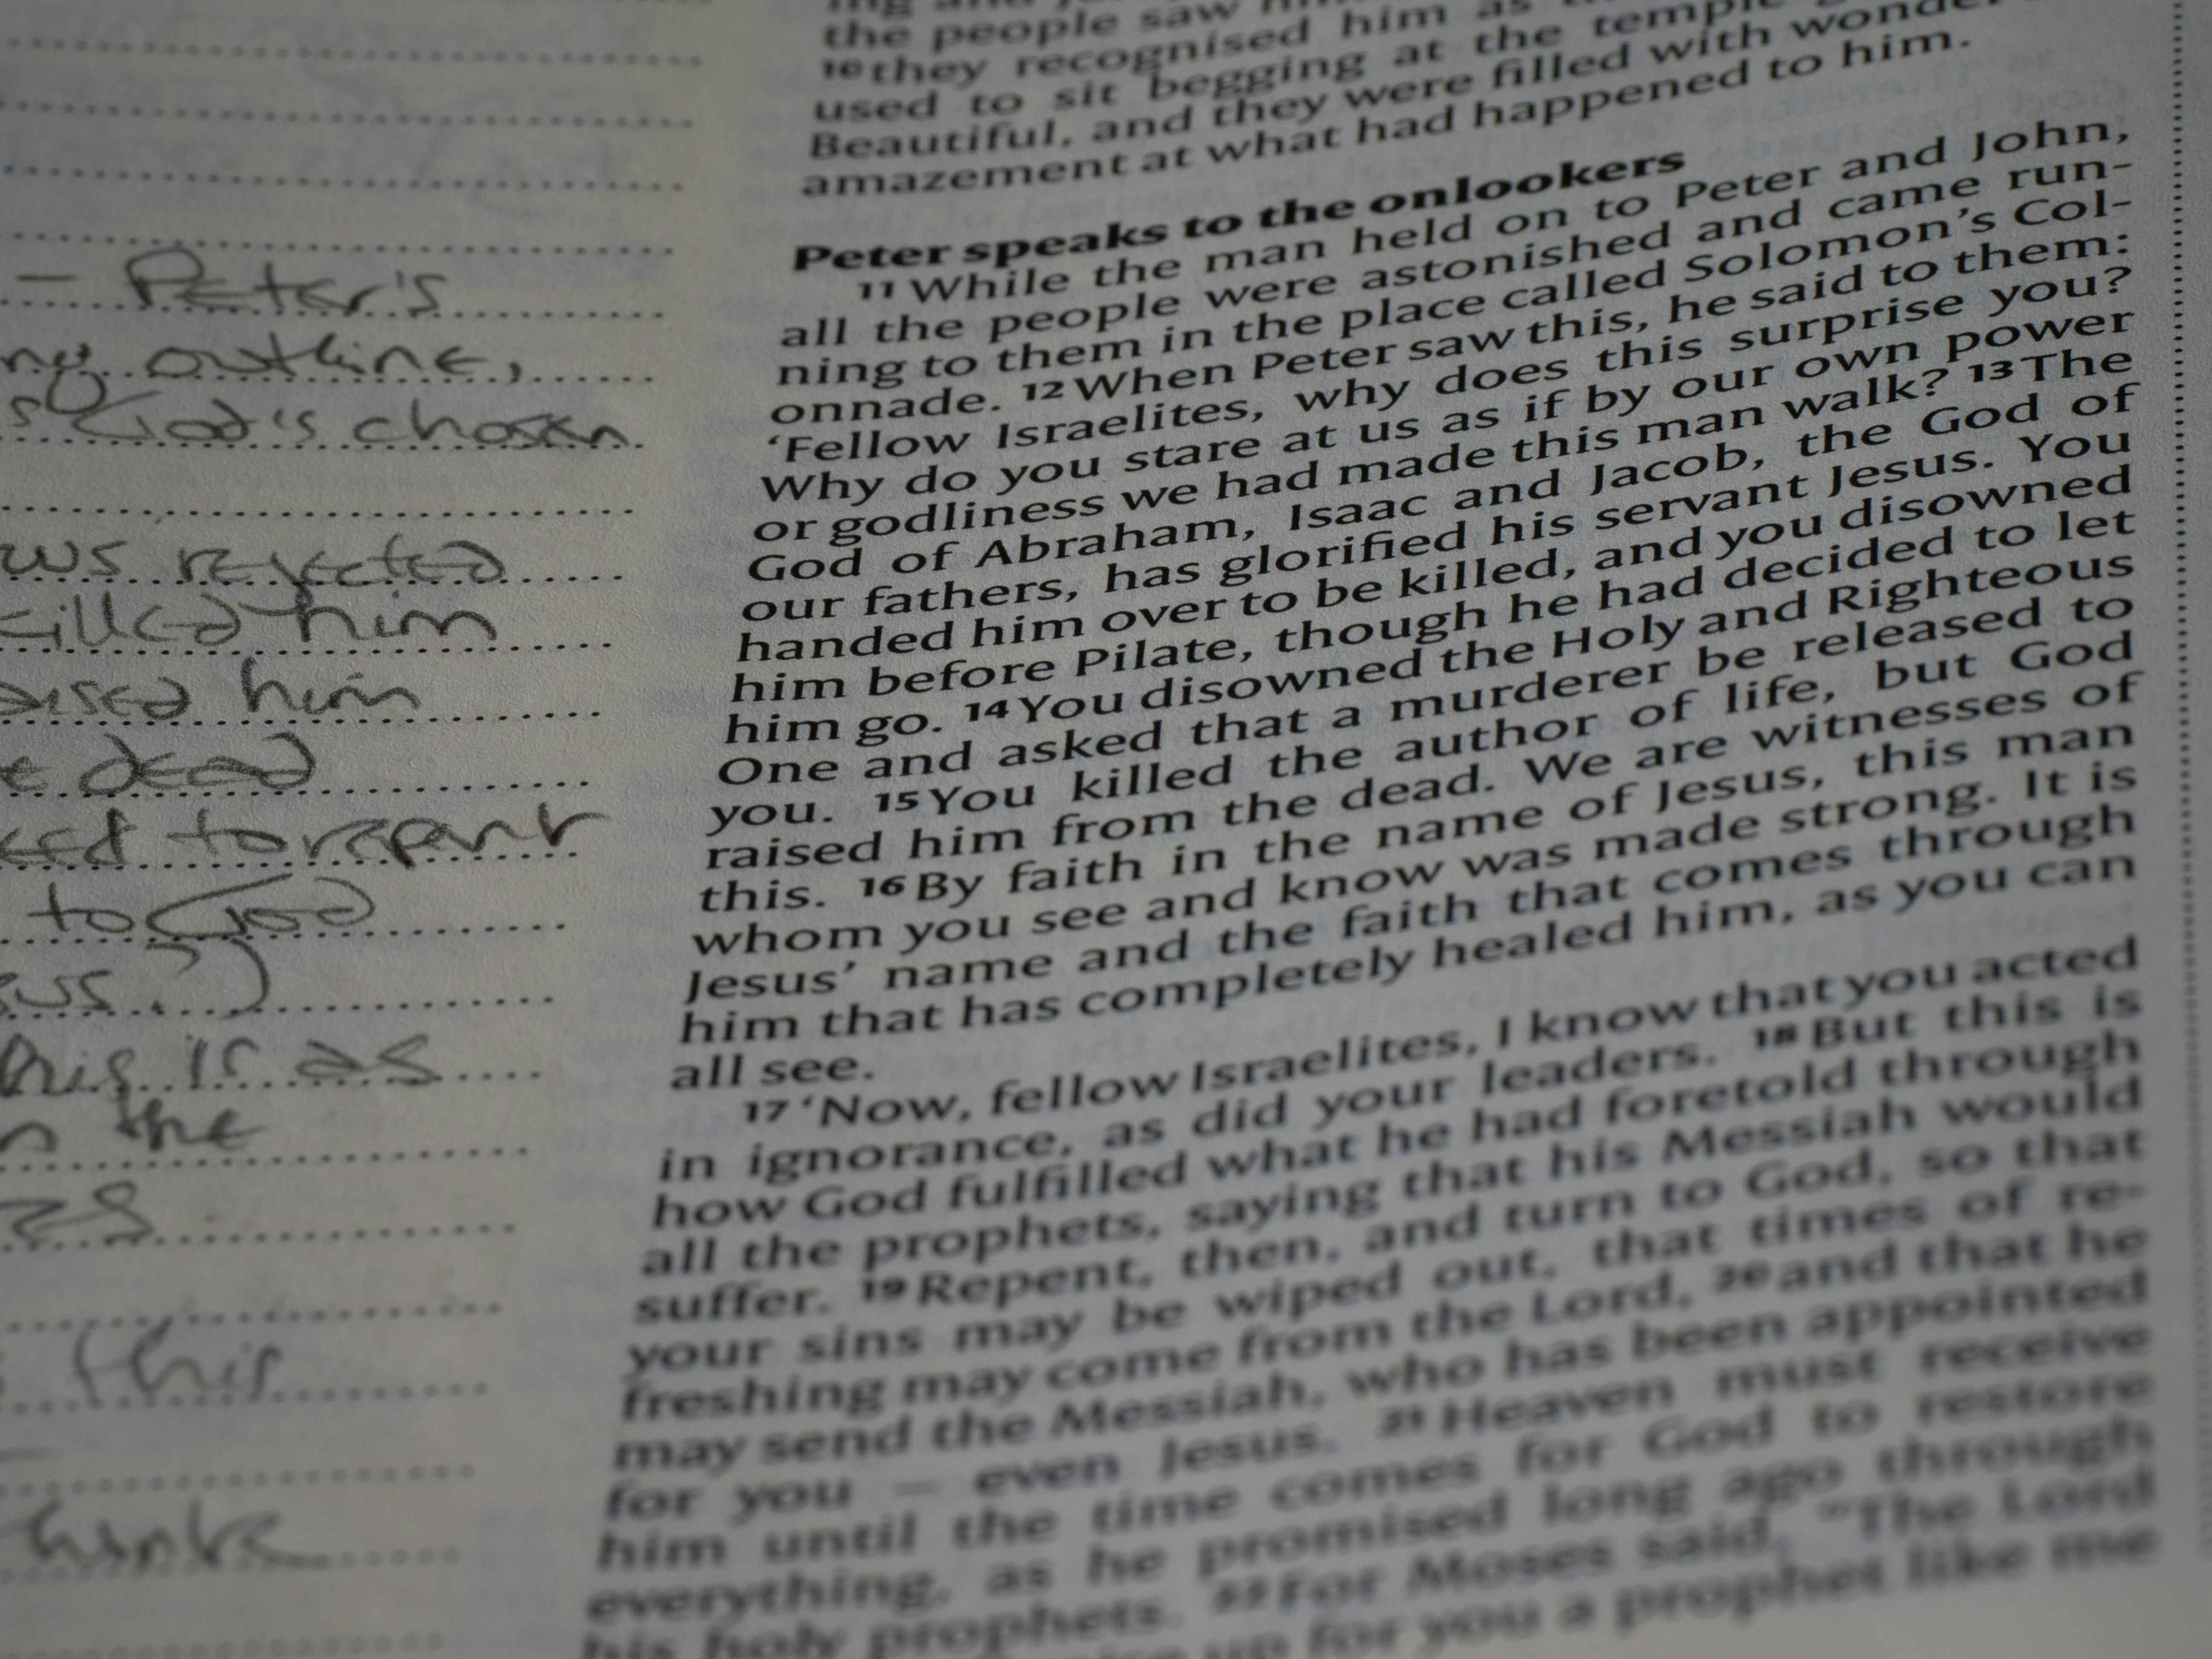 – Peter's
outline,
God's chosen
rejected
killed him
him
dead
to repent
to God
?)
this is as
the
this
the people saw
¹⁰they recognised him as
used to sit begging at the temple
Beautiful, and they were filled with wonder
amazement at what had happened to him.
Peter speaks to the onlookers
¹¹While the man held on to Peter and John,
all the people were astonished and came run-
ning to them in the place called Solomon's Col-
onnade. ¹²When Peter saw this, he said to them:
'Fellow Israelites, why does this surprise you?
Why do you stare at us as if by our own power
or godliness we had made this man walk? ¹³The
God of Abraham, Isaac and Jacob, the God of
our fathers, has glorified his servant Jesus. You
handed him over to be killed, and you disowned
him before Pilate, though he had decided to let
him go. ¹⁴You disowned the Holy and Righteous
One and asked that a murderer be released to
you. ¹⁵You killed the author of life, but God
raised him from the dead. We are witnesses of
this. ¹⁶By faith in the name of Jesus, this man
whom you see and know was made strong. It is
Jesus' name and the faith that comes through
him that has completely healed him, as you can
all see.
¹⁷'Now, fellow Israelites, I know that you acted
in ignorance, as did your leaders. ¹⁸But this is
how God fulfilled what he had foretold through
all the prophets, saying that his Messiah would
suffer. ¹⁹Repent, then, and turn to God, so that
your sins may be wiped out, that times of re-
freshing may come from the Lord, ²⁰and that he
may send the Messiah, who has been appointed
for you – even Jesus. ²¹Heaven must receive
him until the time comes for God to restore
everything, as he promised long ago through
his holy prophets. ²²For Moses said, "The Lord
up for you a prophet like me